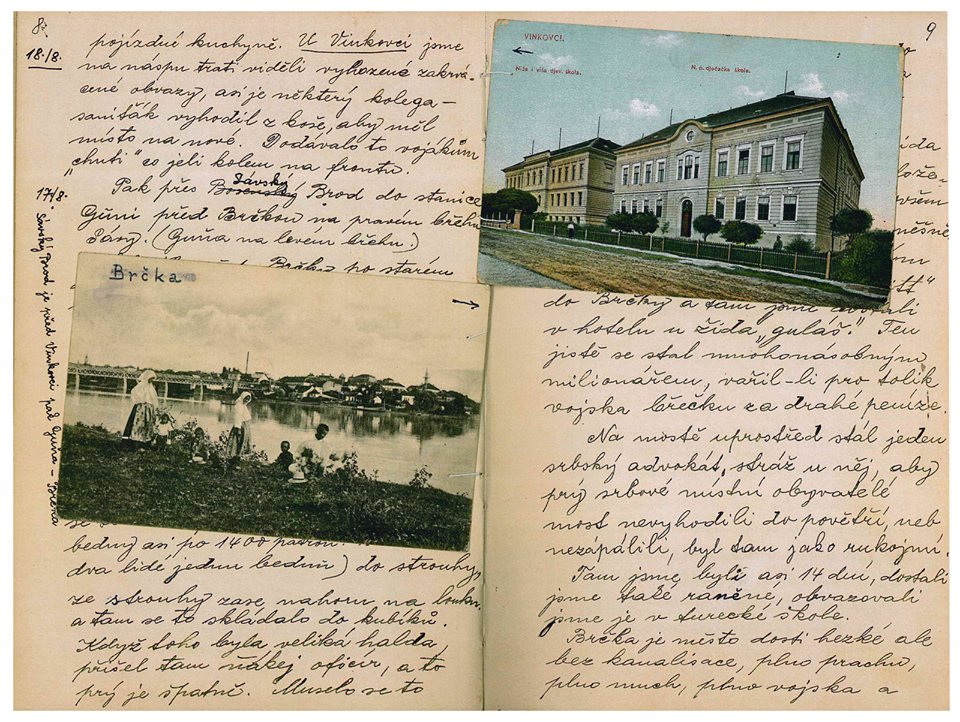 8.
18./8.
pojízdné kuchyně. U Vinkovci jsme
na náspu trati viděli vyhozené zakrvá-
cené obvazy, asi je některý kolega-
saniťák vyhodil z koše, aby měl
místo na nové. Dodávalo to vojákům
„chuti" co jeli kolem na frontu.
17/8.
Pak přes Bosenský Sávský Brod do stanice
Gŭni před Brčkou na pravém břehu
Sávy. (Guňa na levém břehu.)
Brčko po starém
Sávský Brod je před Vinkovci pak Guňa - Brčka
Brčka
bedny asi po 1400 patron.
dva lidé jednu bednu) do strouhy,
ze strouhy zase nahoru na louku
a tam se to skládalo do kubíků.
Když toho byla veliká halda,
přišel tam ňákej oficír, a to
prý je špatně. Muselo se to
9
VINKOVCI.
Niža i viša djev. škola.
N. p. dječačka škola.
do Brčky a tam jsme dostali
v hotelu u žida „guláš." Ten
jistě se stal mnohonásobným
milionářem, vařil-li pro tolik
vojska břečku za drahé peníze.
Na mostě uprostřed stál jeden
srbský advokát, stráž u něj, aby
prý srbové místní obyvatelé
most nevyhodili do povětří, neb
nezapálili, byl tam jako rukojmí.
Tam jsme byli asi 14 dní, dostali
jsme také raněné, obvazovali
jsme je v turecké škole.
Brčka je město dosti hezké ale
bez kanalisace, plno prachu,
plno much, plno vojska a